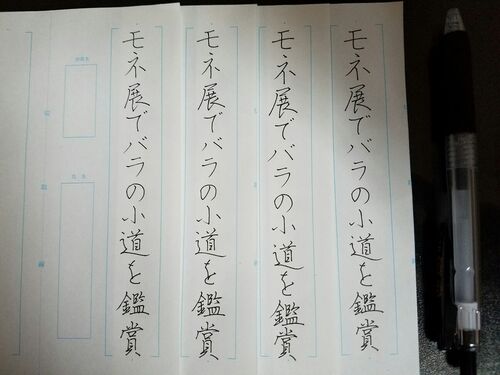 モネ展でバラの小道を鑑賞
モネ展でバラの小道を鑑賞
モネ展でバラの小道を鑑賞
モネ展でバラの小道を鑑賞